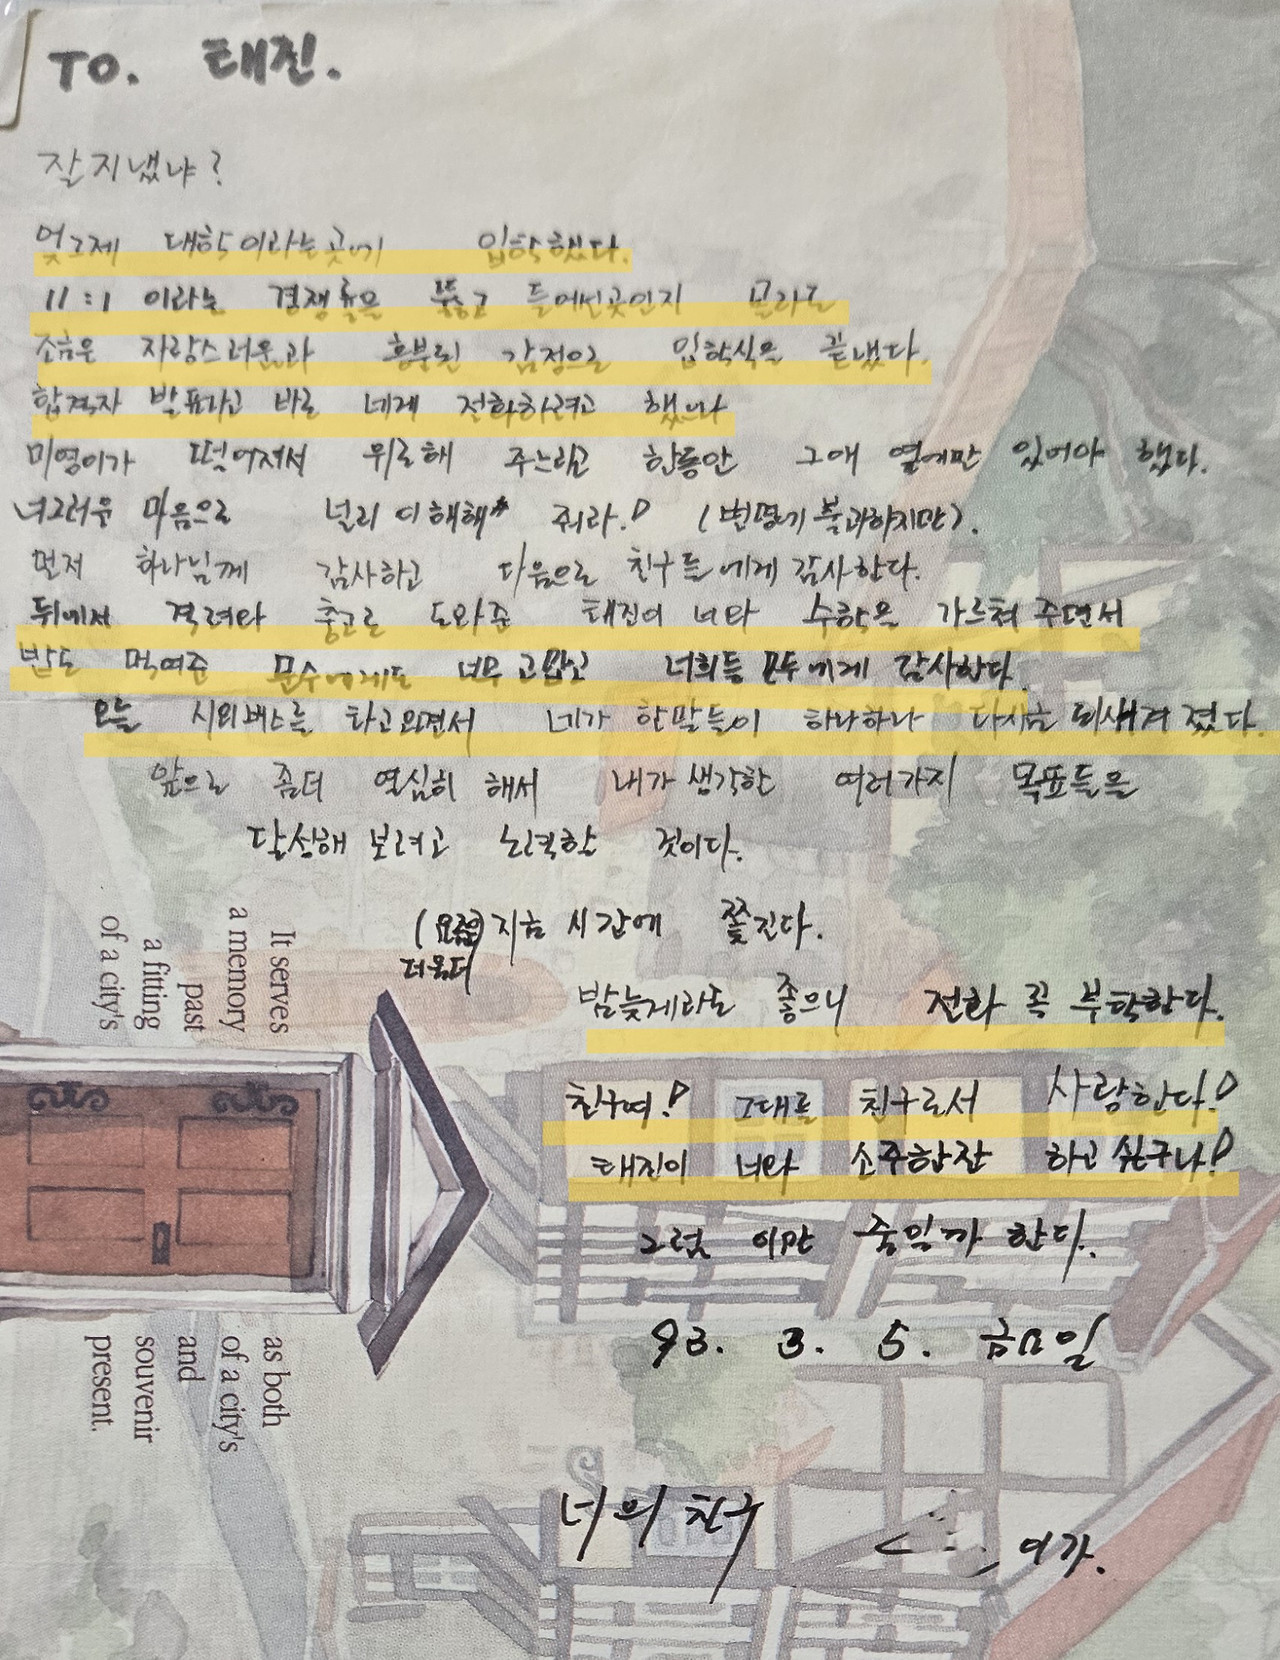 TO. 태진.
잘 지냈냐?
엊그제 대학이라는곳에 입학했다.
11:1 이라는 경쟁률을 뚫고 들어선곳인지 몰라도
조금은 자랑스러움과 흥분된 감정으로 입학식을 끝냈다.
합격자 발표나고 바로 네게 전화하려고 했으나
미영이가 떨어져서 위로해 주느라고 한동안 그애 옆에만 있어야 했다.
너그러운 마음으로 널리 이해해 줘라! (변명에 불과하지만).
먼저 하나님께 감사하고 다음으로 친구들에게 감사한다.
뒤에서 격려와 충고로 도와준 태진이 너와 수학을 가르쳐 주면서
밥도 먹여준 문수에게도 너무 고맙고 너희들 모두에게 감사한다.
오늘 시외버스를 타고오면서 네가 한말들이 하나하나 다시금 되새겨 졌다.
앞으로 좀더 열심히 해서 내가 생각한 여러가지 목표들을
달성해 보려고 노력할 것이다.
(요즘은) 지금 시간에 쫓긴다.
더욱더
밤늦게라도 좋으니 전화 꼭 부탁한다.
친구여! 그대를 친구로서 사랑한다!
태진이 너와 소주한잔 하고 싶구나!
그럼 이만 줄일까 한다.
93. 3. 5. 금요일
너의 친구 이가.
It serves
a memory
past
a fitting
of a city's
as both
of a city's
and
souvenir
present.